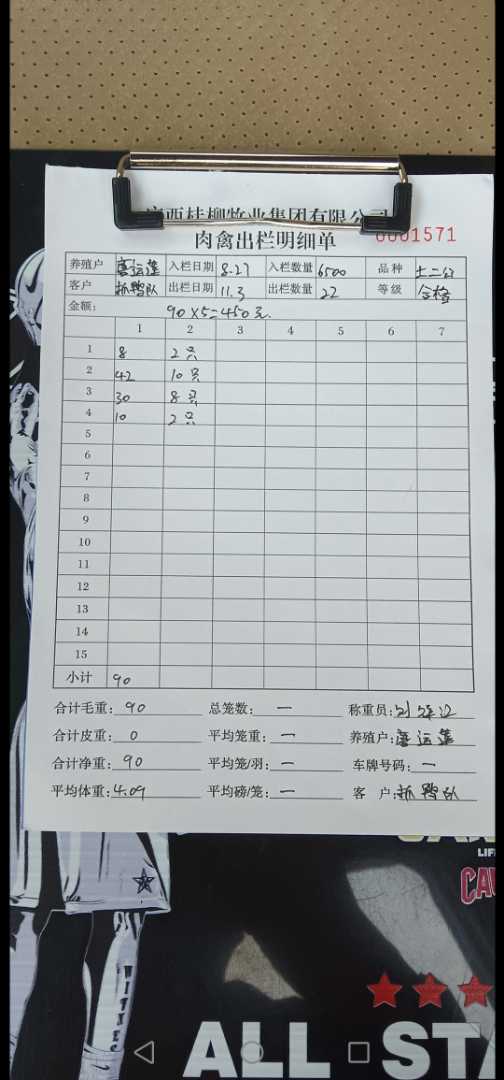 广西桂柳牧业集团有限公司
肉禽出栏明细单 0001571
养殖户 入栏日期 8.27 入栏数量 6500 品种
客户 抓鸭队 出栏日期 11.3 出栏数量 22 等级 合格
金额: 90×5=450元.
1 2 3 4 5 6 7
1 8 2只
2 42 10只
3 30 8只
4 10 2只
5
6
7
8
9
10
11
12
13
14
15
小计 90
合计毛重: 90 总笼数: — 称重员:
合计皮重: 0 平均笼重: — 养殖户:
合计净重: 90 平均笼/羽: — 车牌号码: —
平均体重: 4.09 平均磅/笼: — 客 户: 抓鸭队
LIF
CAV
ALL STA